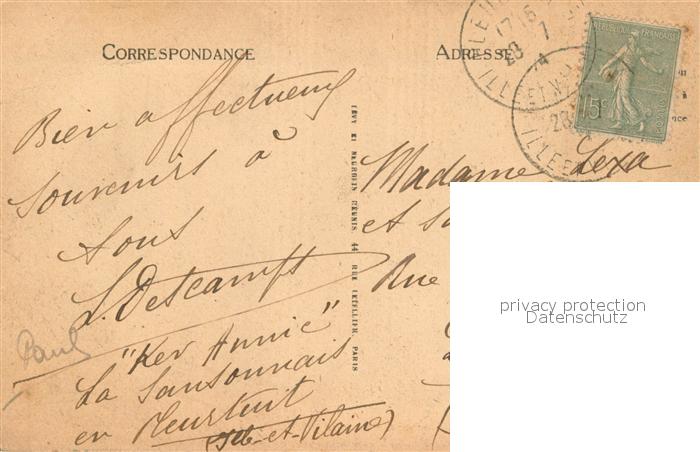 CORRESPONDANCE
ADRESSE
Bien affectueux
souvenirs à
tous
L. Descamps
"Ker Annic"
La Sansonnais
en Pleurtuit
(Ille-et-Vilaine)
Paul
LÉVY ET NEURDEIN RÉUNIS, 44 RUE LETELLIER, PARIS
Madame Lexa
et
Rue
REPUBLIQUE FRANÇAISE
15c
POSTES
17 15
28 7
ILLE ET VILAINE
28
ILLE ET
privacy protection
Datenschutz